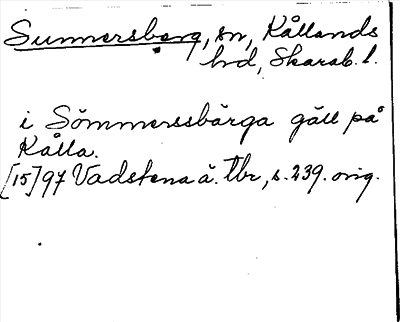 Sunnersberg, sn, Kållands
hd, Skarab. l.
i Sömmerssbärga gäll på
Kålla.
[15]97 Vadstena ä. Tbr, s. 239. orig.